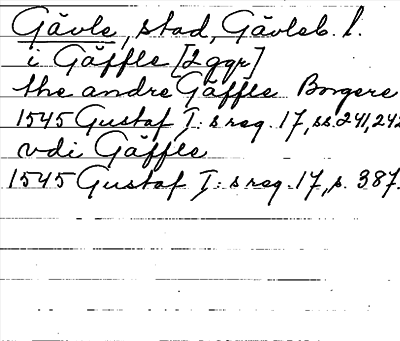 Gävle, stad, Gävleb. l.
i Gäffle [2 ggr]
the andre Gäffle Borgere
1545 Gustaf I:s reg. 17, ss. 241, 242
vdi Gäffle
1545 Gustaf I:s reg. 17, s. 387.